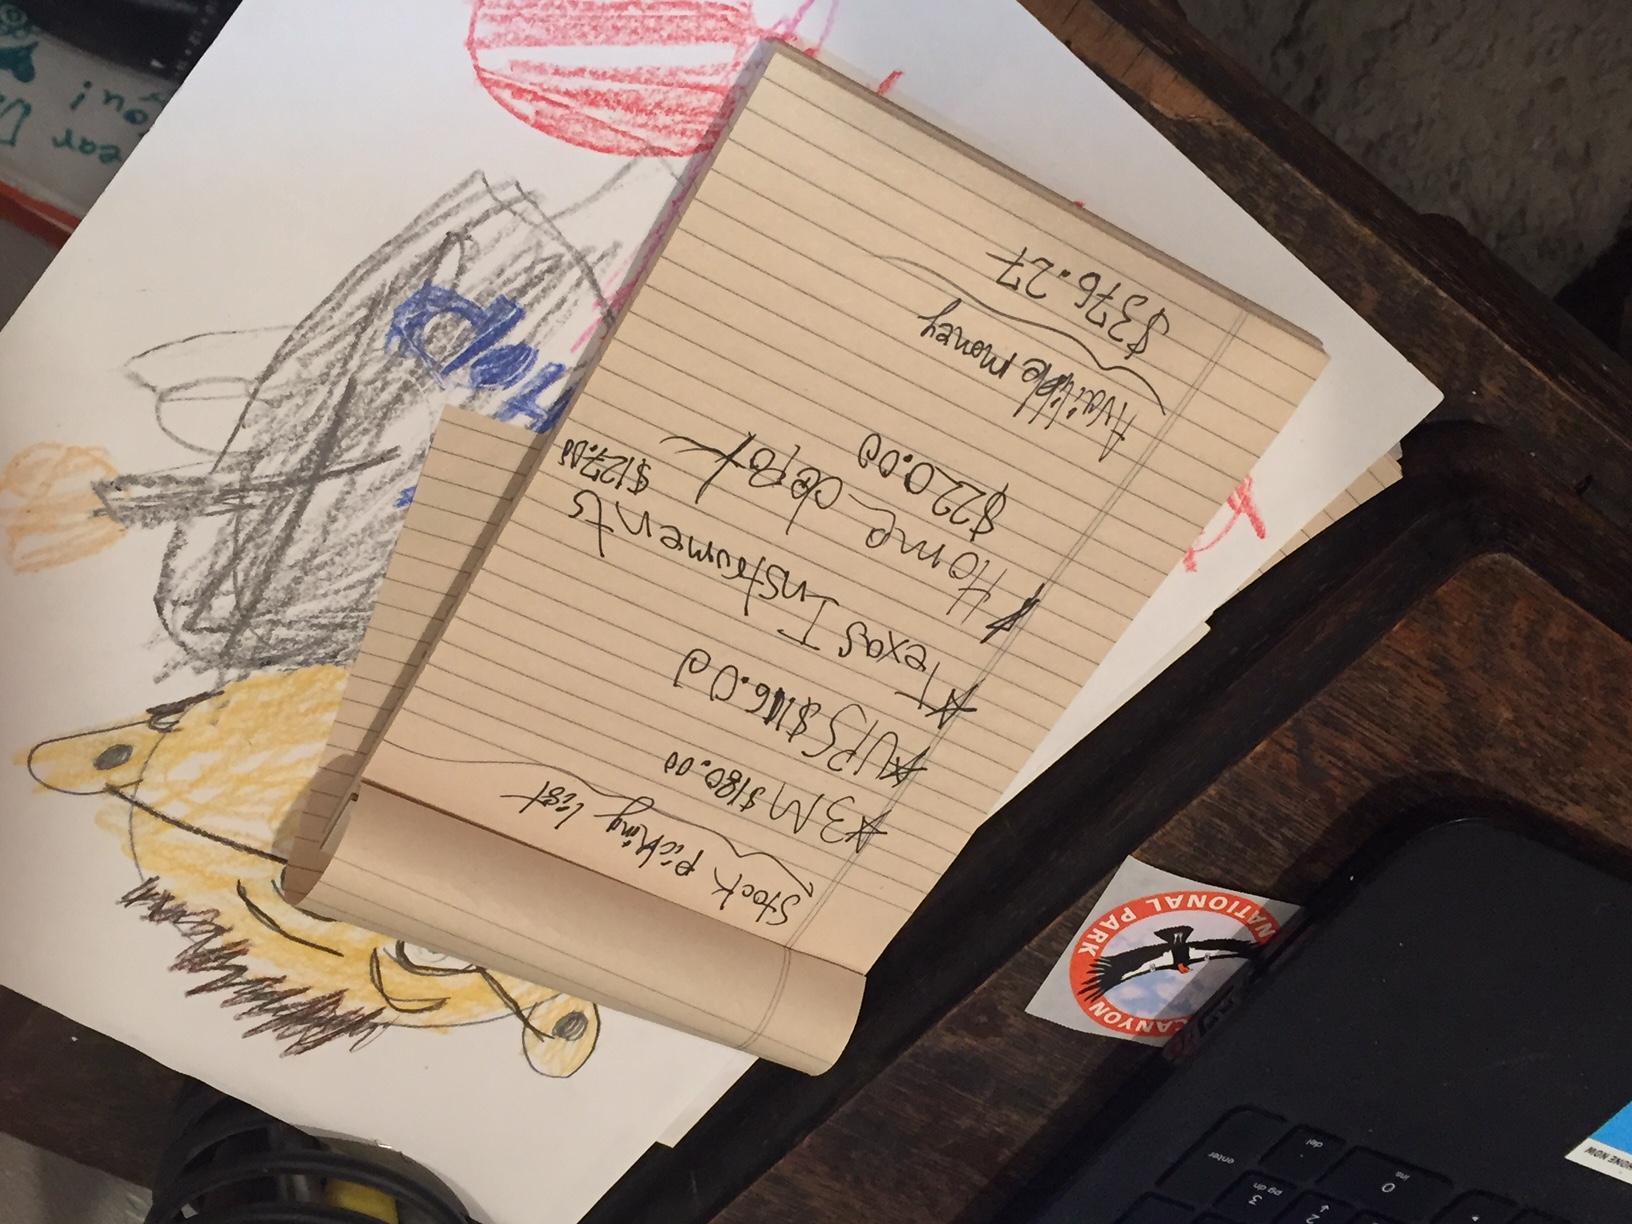 Stock picking list
*3M $180.00
*UPS $116.00
*Texas Instruments
$127.00
*Home depot
$220.00
Availible money
$376.27
CANYON
NATIONAL PARK
enter
del
0
ins
3
pg dn
2
HONE NOW